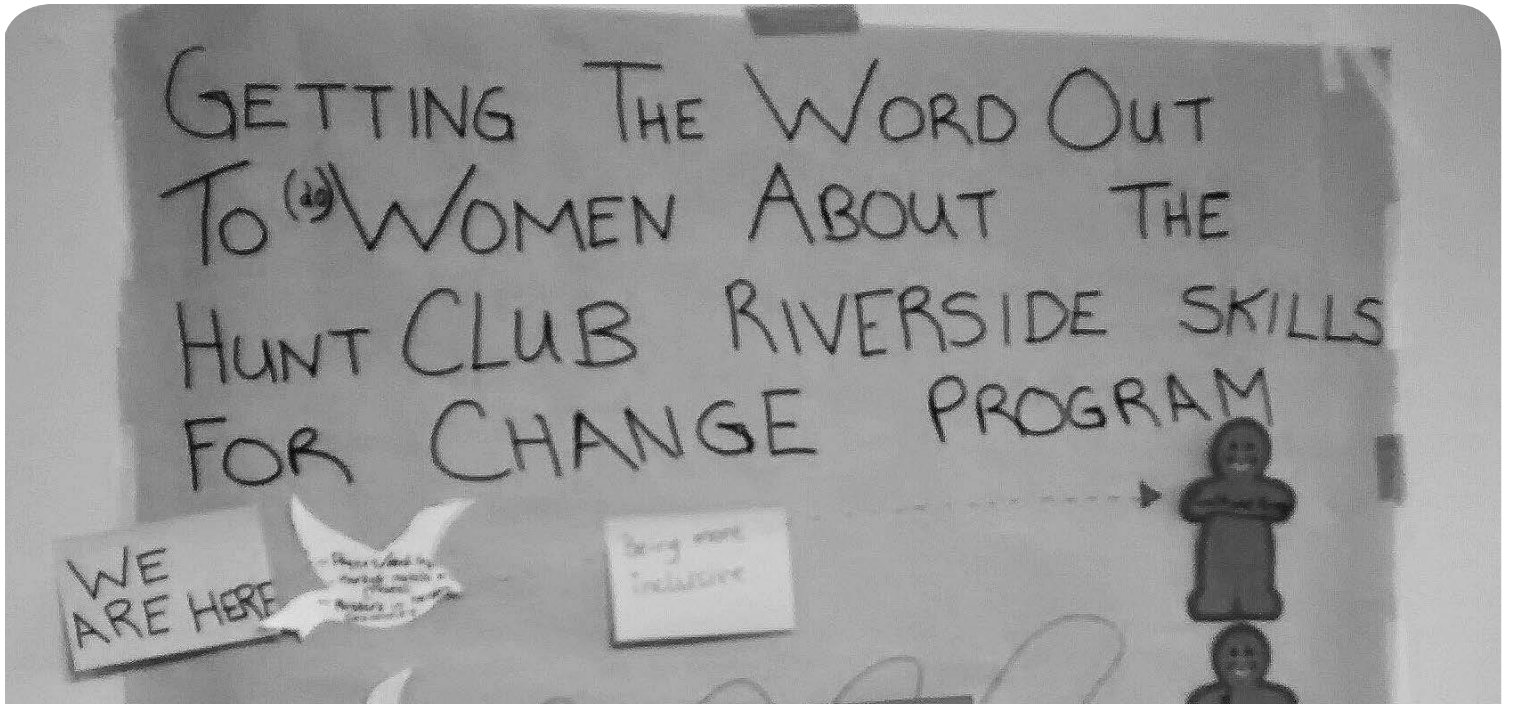 GETTING THE WORD OUT
TO WOMEN ABOUT THE
HUNT CLUB RIVERSIDE SKILLS
FOR CHANGE PROGRAM
WE
ARE HERE
Being more
Inclusive